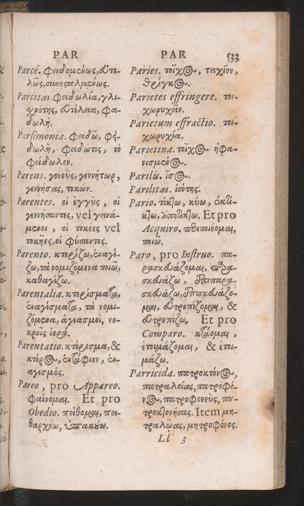 PAR
PAR 533
Parcè. φειδομένως, εὐτε-
λῶς, συνεσταλμένως.
Parcitas. φειδωλία, γλι-
χρότης, εὐτέλεια, φει-
δωλή.
Parsimonia. φειδὼ, φει-
δωλὴ, φείδωτις, τὸ
φείδωλον.
Parens. γονεὺς, γεννήτωρ,
γεννήσας, τεκών.
Parentes. οἱ ἐγγὺς, οἱ
γεννήσαντες, vel γεινά-
μενοι, οἱ τοκέες vel
τοκῆες, οἱ φύσαντες.
Parento. κτερίζω, ἐναγί-
ζω, τὰ νομιζόμενα ποιῶ,
καθαγίζω.
Parentalia. κτερίσματα,
ἐναγίσματα, τὰ νομι-
ζόμενα, ἁγιασμοὶ, νε-
κροῖς ἱερά.
Parentatio. κτέρισμα, &
κτέρος, ἐντάφιον, ἐν-
αγισμός.
Pareo, pro Appareo.
φαίνομαι. Et pro
Obedio. πείθομαι, πει-
θαρχέω, ὑπακούω.
Paries. τοῖχος, τειχίον,
θριγκός.
Parietes effringere. τοι-
χωρυχεῖν.
Parietum effractio. τοι-
χωρυχία.
Parietina. τοῖχος ἠφα-
νισμένος.
Parilis. ἶσος.
Parilitas. ἰσότης.
Pario. τίκτω, κύω, ἐκτί-
κτω, ἀποτίκτω. Et pro
Acquiro. περιποιέομαι,
ποιῶ.
Paro, pro Instruo. πα-
ρασκευάζομαι, παρα-
σκευάζω,
σκευάζω, ἐπισκευάζο-
μαι, εὐτρεπίζομαι, &
εὐτρεπίζω. Et pro
Comparo. κτάομαι,
ἑτοιμάζομαι, & ἑτοι-
μάζω.
Parricida. πατροκτόνος,
πατραλοίας, πατροφό-
νος, πατροφονεὺς, πα-
τροκτονήσας. Item μη-
τραλώας, μητροφόνος.
Ll 3